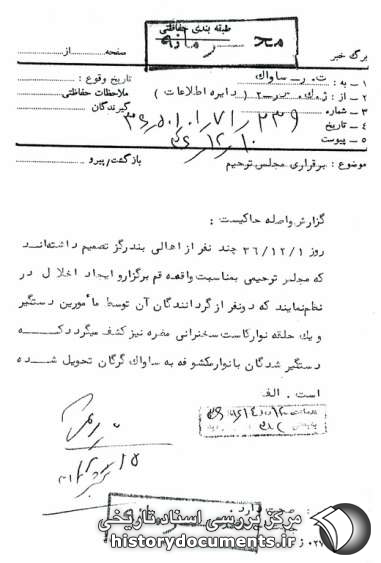 طبقه بندی حفاظتی
محرمانه
برگ خبر
صفحه ... از ...
۱ – به : ت . ر – ساواک
تاریخ وقوع :
۲ – از : ژ . ک . ر – ۲ ( دایره اطلاعات )
ملاحظات حفاظتی
۳ – شماره
گیرندگان
۴ – تاریخ ۳۶/۱۲/۱۰
۵ – پیوست
بازگشت/پیرو
موضوع : برقراری مجلس ترحیم
گزارش واصله حاکیست :
روز ۳۶/۱۲/۱ چند نفر از اهالی بندرگز تصمیم داشته‌اند
که مجلس ترحیمی بمناسبت واقعه قم برگزار و ایجاد اخلال در
نظم نمایند که دو نفر از گردانندگان آن توسط مأمورین دستگیر
و یک حلقه نوار کاست سخنرانی مضره نیز کشف میگردد که
دستگیر شدگان با نوار مکشوفه به ساواک گرگان تحویل شده
است . الف
مرکز بررسی اسناد تاریخی
historydocuments.ir